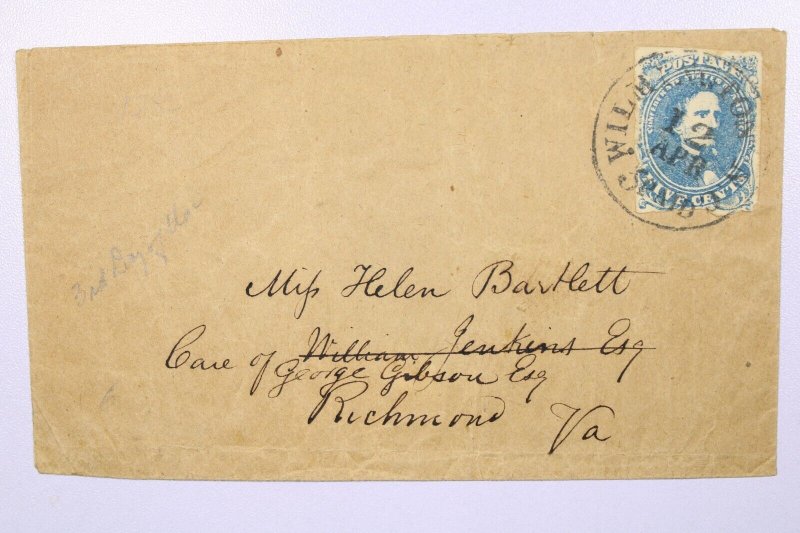 POSTAGE
WILMINGTON
12
APR
5 PAID
FIVE CENTS
Miss Helen Bartlett
Care of William Jenkins Esq
George Gibson Esq
Richmond Va
3rd Day